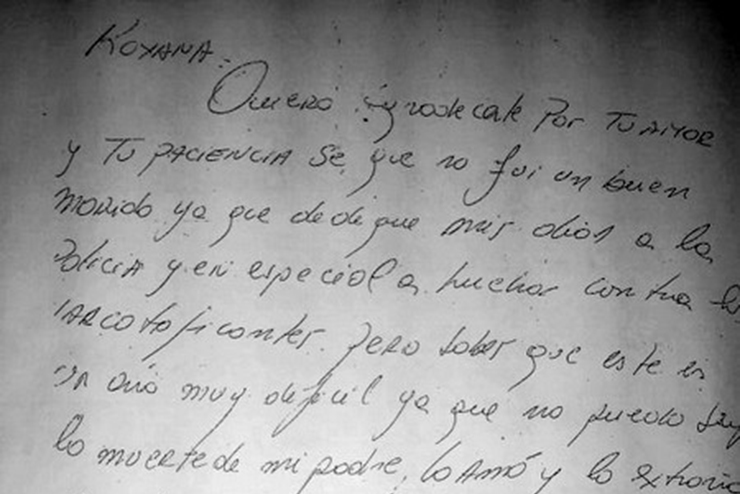 ROXANA:
Quiero agradecerte Por TU AMOR
y TU PACIENCIA Se que no fui un buen
marido ya que dedique mis días a la
Policia y en especial a luchar contra los
NARCOtraficantes. Pero sabes que este es
un año muy dificil ya que no puedo
la muerte de mi padre, lo Amo y lo extraño